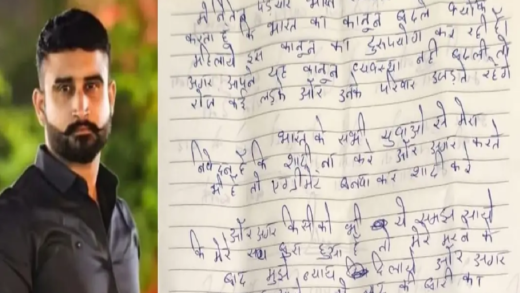 भारत
करता है कि भारत का कानून बदले क्योंकि
महिलायें इस कानून का दुरुपयोग कर रही हैं
अगर आपने यह कानून व्यवस्था नही बदली तो
रोज कई लड़के और उनके परिवार उजड़ते रहेंगे
भारत के सभी युवाओ से मेरा
निवेदन है कि शादी ना करे और अगर करते
भी है तो एग्रीमेंट बनवा कर शादी करे
और अगर किसीको भी ये समझ आये
कि मेरे साथ बुरा हुआ है तो मेरे मरने के
बाद मुझे न्याय दिलाये और अगर
के का